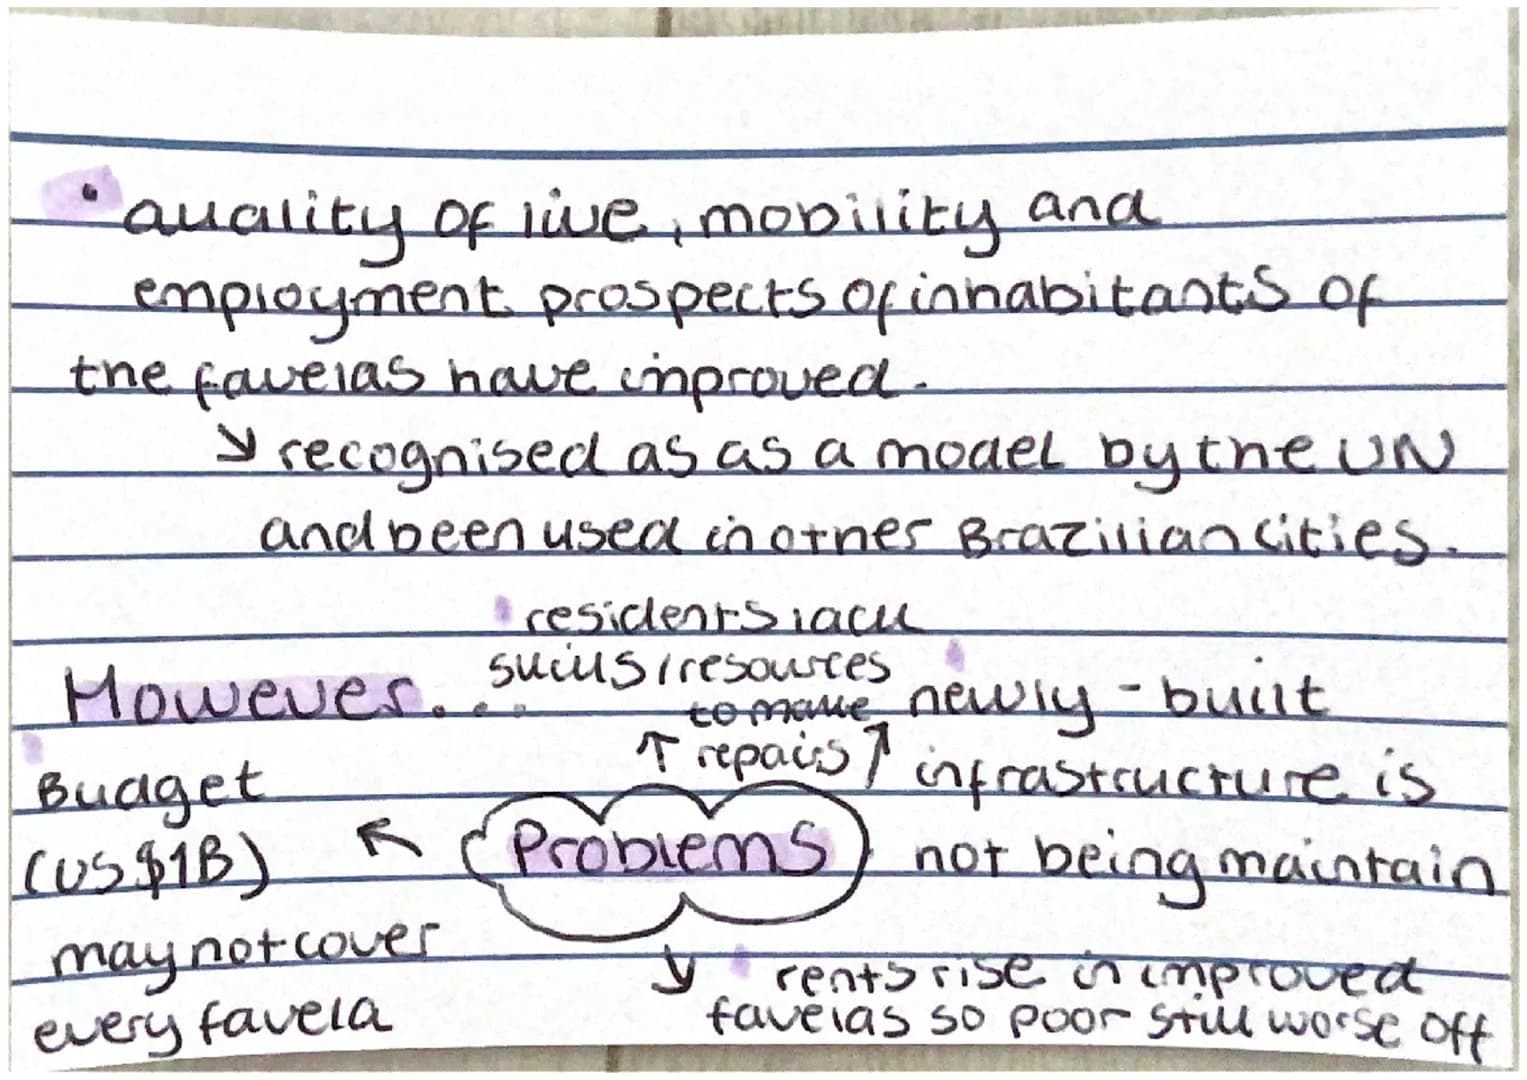 • quality of live, mobility and
employment prospects of inhabitants of
the favelas have improved.
↘ recognised as as a model by the UN
and been used in other Brazilian cities.
However...
• residents lack
skills/resources
to make
repairs
• newly-built
infrastructure is
not being maintain
Budget
(US$1B)
may not cover
every favela
Problems
• rents rise in improved
favelas so poor still worse off